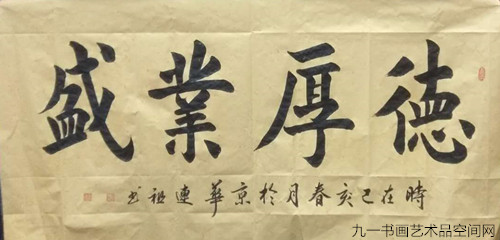 德厚業盛
時在己亥春月於京華連祖書
九一书画艺术品空间网